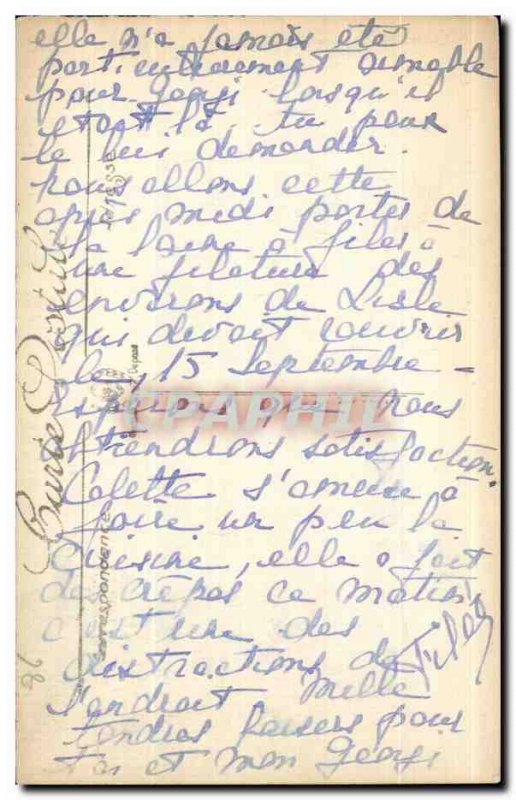 elle n'a jamais été
particulièrement aimable
pour Georgi lorsqu'il
était là tu peux
le lui demander.
nous allons cette
après midi porter de
la laine à filer à
une filature des
environs de Lisle
qui devait rouvrir
le 15 Septembre -
espérons que nous
tiendrons satisfaction.
Colette s'amuse à
faire un peu la
cuisine, elle a fait
des crêpes ce matin
c'est une des
distractions de
l'endroit Mille
tendres baisers pour
toi et mon Georgi
Carte Postale
Correspondance
Adresse
Déposé
98
CPARPHIL